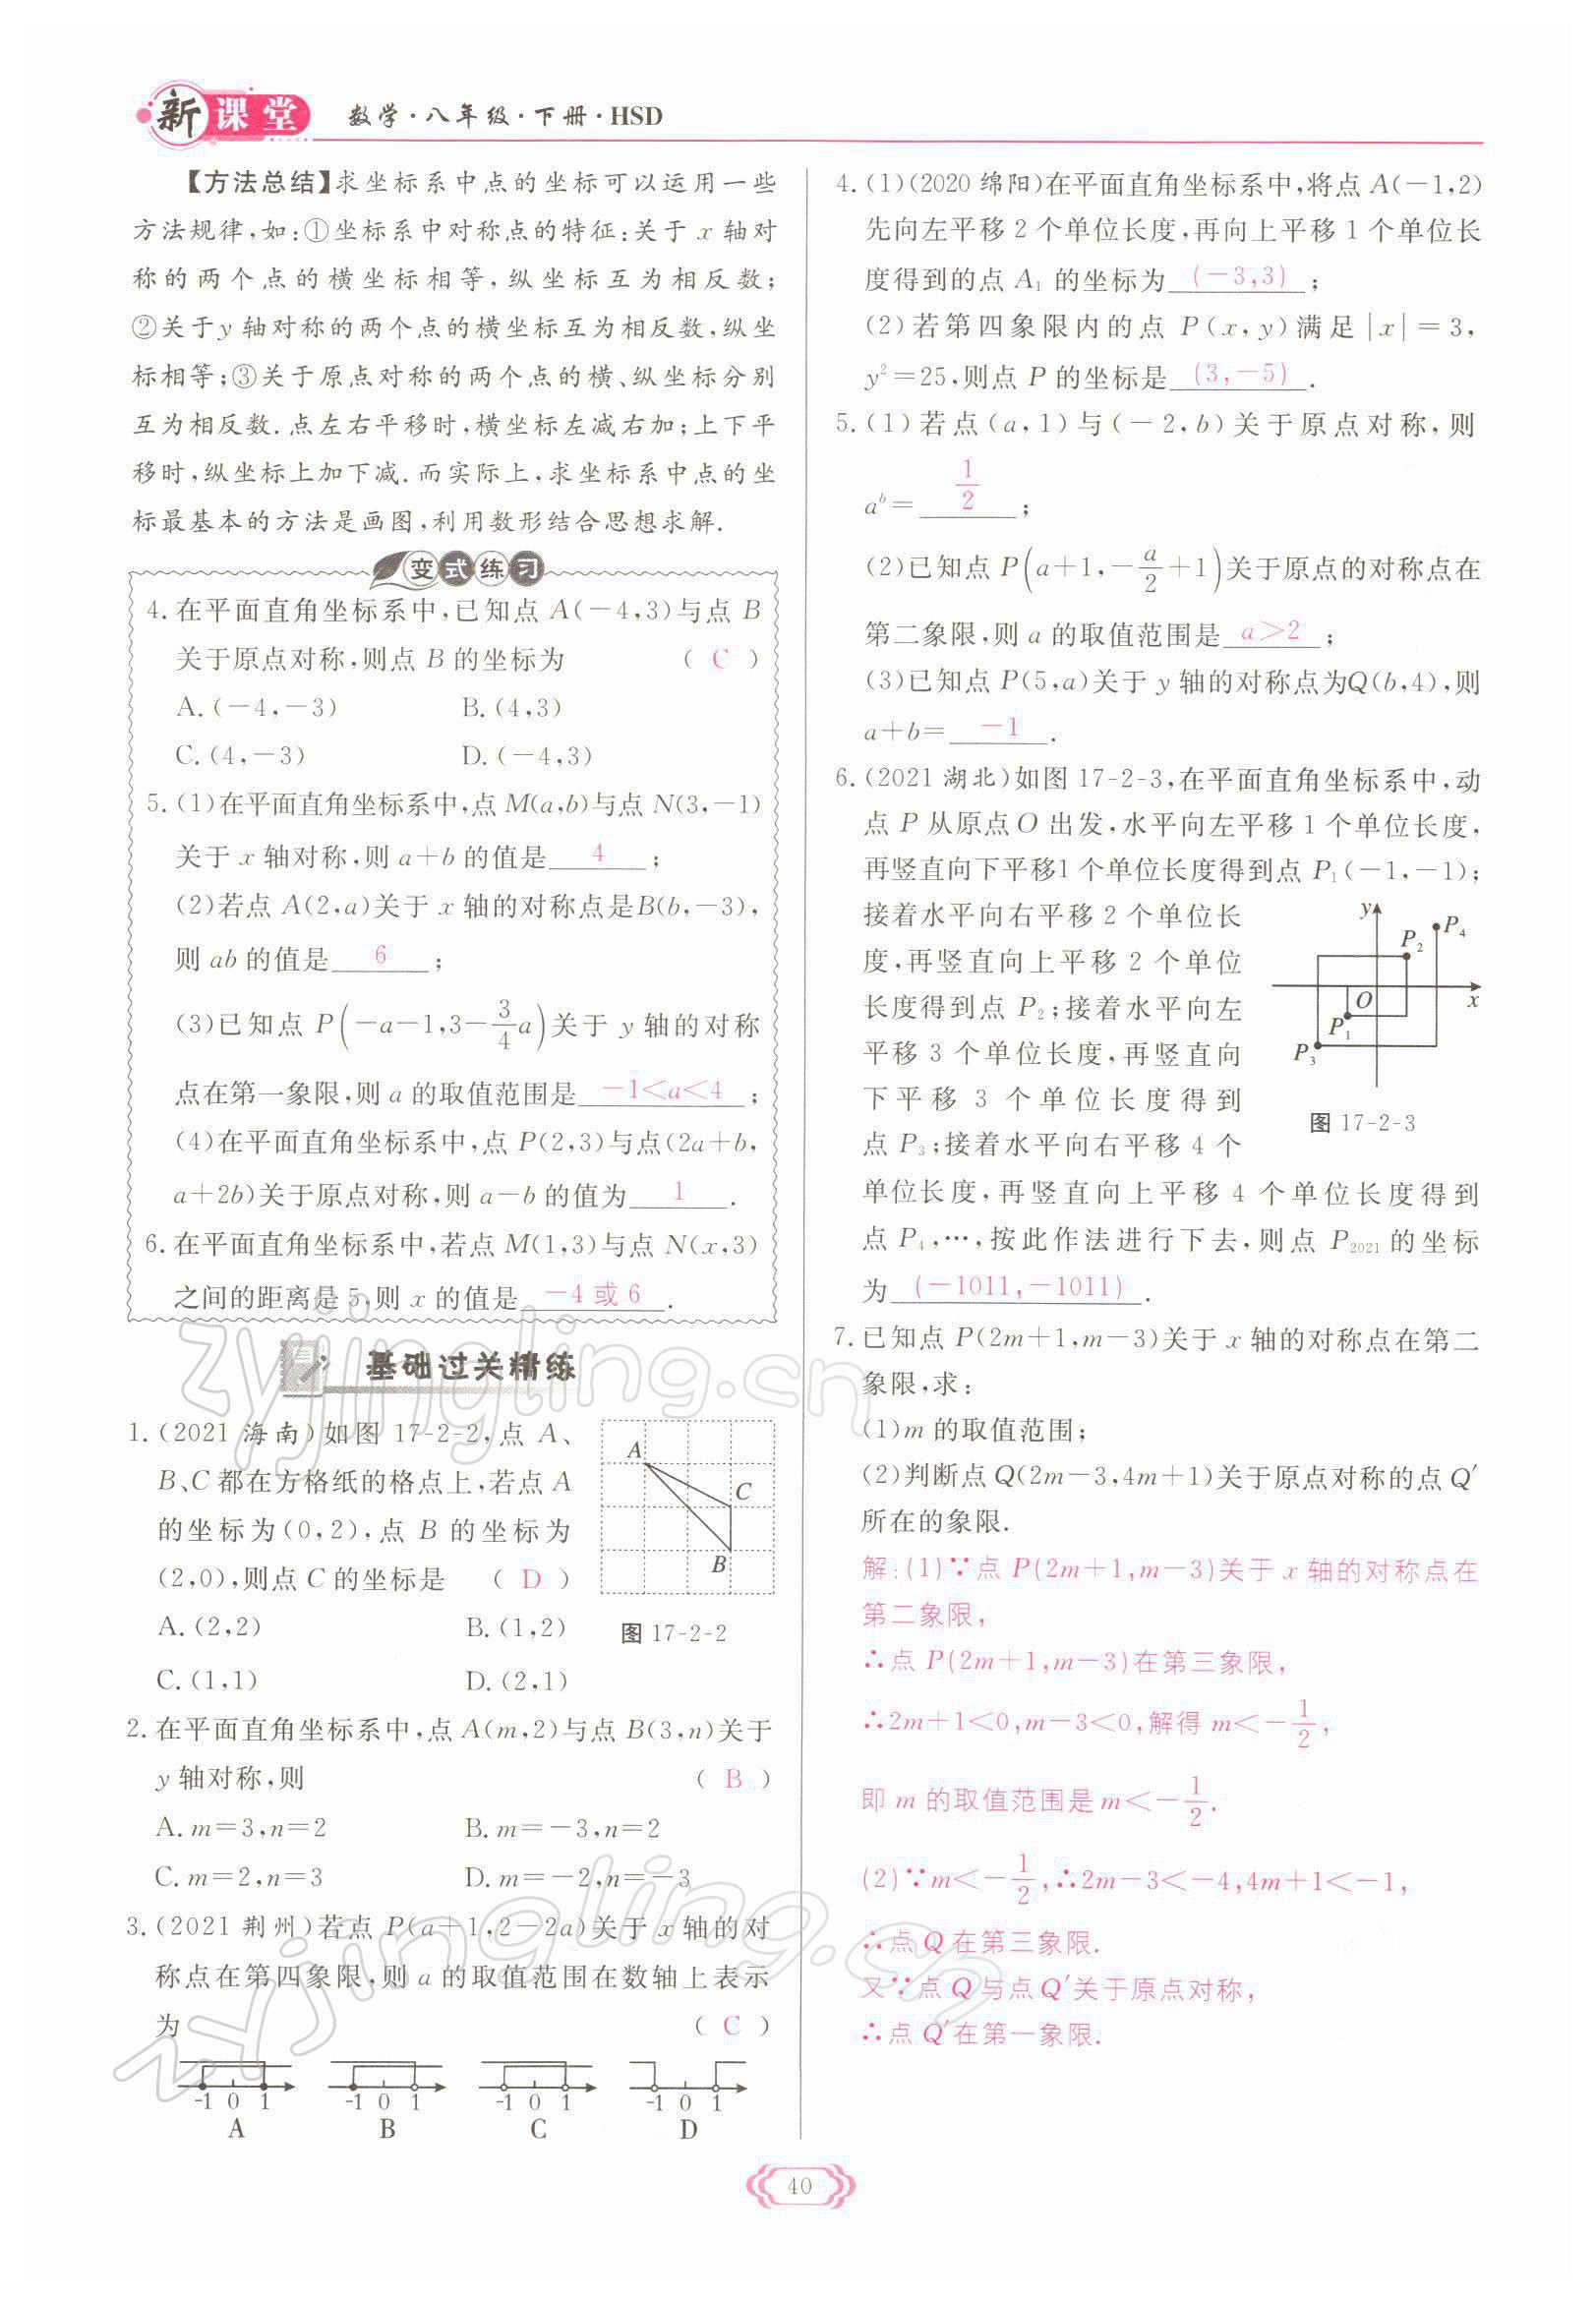 新课堂 数学·八年级·下册·HSD
【方法总结】求坐标系中点的坐标可以运用一些
方法规律,如:①坐标系中对称点的特征:关于 x 轴对
称的两个点的横坐标相等,纵坐标互为相反数;
②关于y 轴对称的两个点的横坐标互为相反数,纵坐
标相等;③关于原点对称的两个点的横、纵坐标分别
互为相反数.点左右平移时,横坐标左减右加;上下平
移时,纵坐标上加下减.而实际上,求坐标系中点的坐
标最基本的方法是画图,利用数形结合思想求解.
变式练习
4.在平面直角坐标系中,已知点 A(-4,3)与点 B
关于原点对称,则点 B 的坐标为 ( C )
A.(-4,-3) B.(4,3)
C.(4,-3) D.(-4,3)
5.(1)在平面直角坐标系中,点 M(a,b)与点 N(3,-1)
关于 x 轴对称,则 a+b 的值是 4 ;
(2)若点 A(2,a)关于 x 轴的对称点是B(b,-3),
则 ab 的值是 6 ;
(3)已知点 P(-a-1,3-3/4a)关于 y 轴的对称
点在第一象限,则 a 的取值范围是 -1<a<4 ;
(4)在平面直角坐标系中,点 P(2,3)与点(2a+b,
a+2b)关于原点对称,则 a-b 的值为 1 .
6.在平面直角坐标系中,若点 M(1,3)与点 N(x,3)
之间的距离是 5,则 x 的值是 -4 或 6 .
基础过关精练
1.(2021 海南)如图 17-2-2,点 A、
B、C 都在方格纸的格点上,若点 A
的坐标为(0,2),点 B 的坐标为
(2,0),则点 C 的坐标是 ( D )
A.(2,2) B.(1,2)
C.(1,1) D.(2,1)
A
C
B
图 17-2-2
2.在平面直角坐标系中,点 A(m,2)与点 B(3,n)关于
y 轴对称,则 ( B )
A.m=3,n=2 B.m=-3,n=2
C.m=2,n=3 D.m=-2,n=-3
3.(2021 荆州)若点 P(a+1,2-2a)关于 x 轴的对
称点在第四象限,则 a 的取值范围在数轴上表示
为 ( C )
-1 0 1 -1 0 1 -1 0 1 -1 0 1
A B C D
4.(1)(2020 绵阳)在平面直角坐标系中,将点 A(-1,2)
先向左平移 2 个单位长度,再向上平移 1 个单位长
度得到的点 A₁ 的坐标为 (-3,3) ;
(2)若第四象限内的点 P(x,y)满足|x|=3,
y²=25,则点 P 的坐标是 (3,-5) .
5.(1)若点(a,1)与(-2,b)关于原点对称,则
aᵇ= 1/2 ;
(2)已知点 P(a+1,-a/2+1)关于原点的对称点在
第二象限,则 a 的取值范围是 a>2 ;
(3)已知点 P(5,a)关于 y 轴的对称点为Q(b,4),则
a+b= -1 .
6.(2021 湖北)如图 17-2-3,在平面直角坐标系中,动
点 P 从原点 O 出发,水平向左平移 1 个单位长度,
再竖直向下平移1 个单位长度得到点 P₁(-1,-1);
接着水平向右平移 2 个单位长
度,再竖直向上平移 2 个单位
长度得到点 P₂;接着水平向左
平移 3 个单位长度,再竖直向
下平移 3 个单位长度得到
点 P₃;接着水平向右平移 4 个
单位长度,再竖直向上平移 4 个单位长度得到
点 P₄,…,按此作法进行下去,则点 P₂₀₂₁ 的坐标
为 (-1011,-1011) .
y
P₄
P₂
O
x
P₁
P₃
图 17-2-3
7.已知点 P(2m+1,m-3)关于 x 轴的对称点在第二
象限,求:
(1)m 的取值范围;
(2)判断点 Q(2m-3,4m+1)关于原点对称的点 Q′
所在的象限.
解:(1)∵点 P(2m+1,m-3)关于 x 轴的对称点在
第二象限,
∴点 P(2m+1,m-3)在第三象限,
∴2m+1<0,m-3<0,解得 m<-1/2,
即 m 的取值范围是 m<-1/2.
(2)∵m<-1/2,∴2m-3<-4,4m+1<-1,
∴点 Q 在第三象限.
又∵点 Q 与点 Q′关于原点对称,
∴点 Q′在第一象限.
zyjingling.cn
zyjingling.cn
40